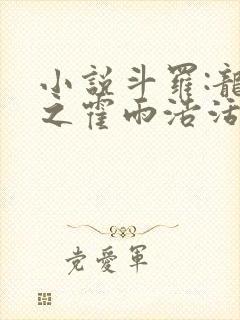 小說斗羅:龍
之霍雨浩活
党愛軍